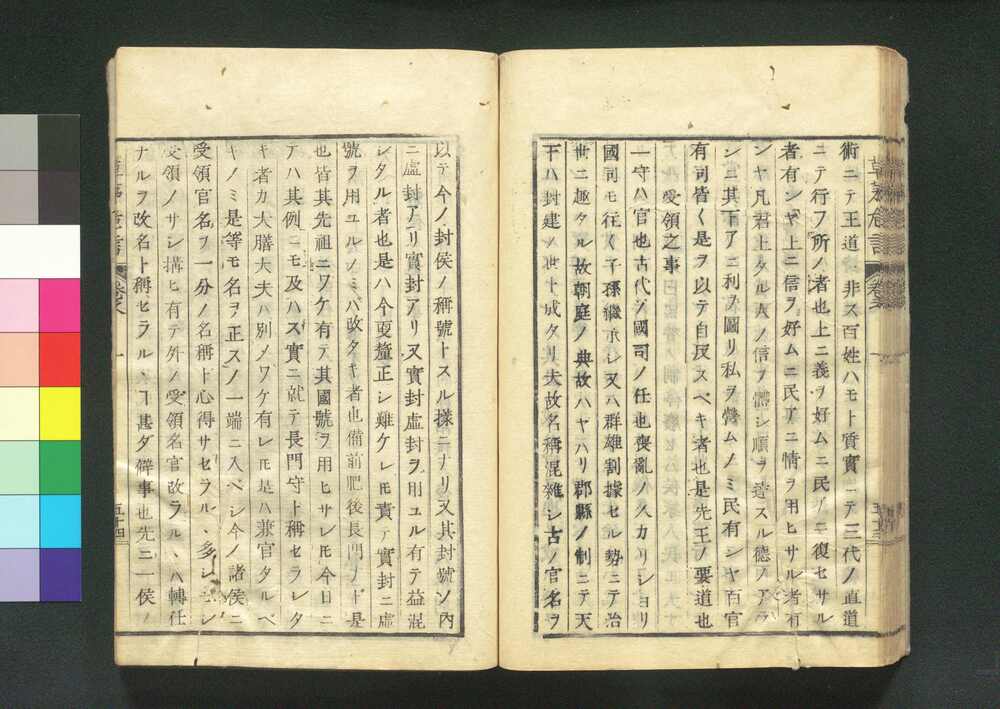 術ニテ王道ニ非ス百姓ハモト質實ニテ三代ノ直道
ニテ行フ所ノ者也上ニ義ヲ好ムニ民ノ上ニ復セサル
者有ンヤ上ニ信ヲ好ムニ民ノ上ニ情ヲ用ヒサル者有
ンヤ凡君上タル人ノ信ヲ體シ順ヲ達スル德ノアラ
ンニ其下タニ利ヲ圖リ私ヲ營ムノミ民有シヤ百官
有司皆々是ヲ以テ自反スベキ者也是先王ノ要道也
受領之事
一守ハ官也古代ノ國司ノ任也喪亂ノ久カリシヨリ
國司モ往々子孫繼承シ又ハ群雄割據セル勢ニテ治
世ニ趣タル故朝庭ノ典故ハヤハリ郡縣ノ制ニテ天
下ハ封建ノ世ト成タリ夫故名稱混雜シ古ノ官名ヲ
以テ今ノ封侯ノ稱號トスル樣ニナリ又其封號ソ內
ニ虛封アリ實封アリ又實封虛封ヲ用ユル有テ益混
シタル者也是ハ今更釐正シ難ケレ𪜈責テ實封ニ虛
號ヲ用ユルノミハ改タキ者也備前肥後長門ナド是
也皆其先祖ニワケ有テ其國號ヲ用ヒサレ𪜈今日ニ
テハ其例ニモ及ハス實ニ就テ長門守ト稱セラレタ
キ者カ大膳大夫ハ別メワケ有レ𪜈是ハ兼官タルベ
キノミ是等モ名ヲ正スノ一端ニ入ベシ今ノ諸侯ニ
受領官名ヲ一分ノ名稱ト心得サセラル、多シ𪜈レ
受領ノサシ搆ヒ有テ外ノ受領名官改ラル、ハ轉任
ナルヲ改名ト稱セラル、ヿ甚ダ僻事也先ニ一侯ノ
草茅危言
五十三
五十四